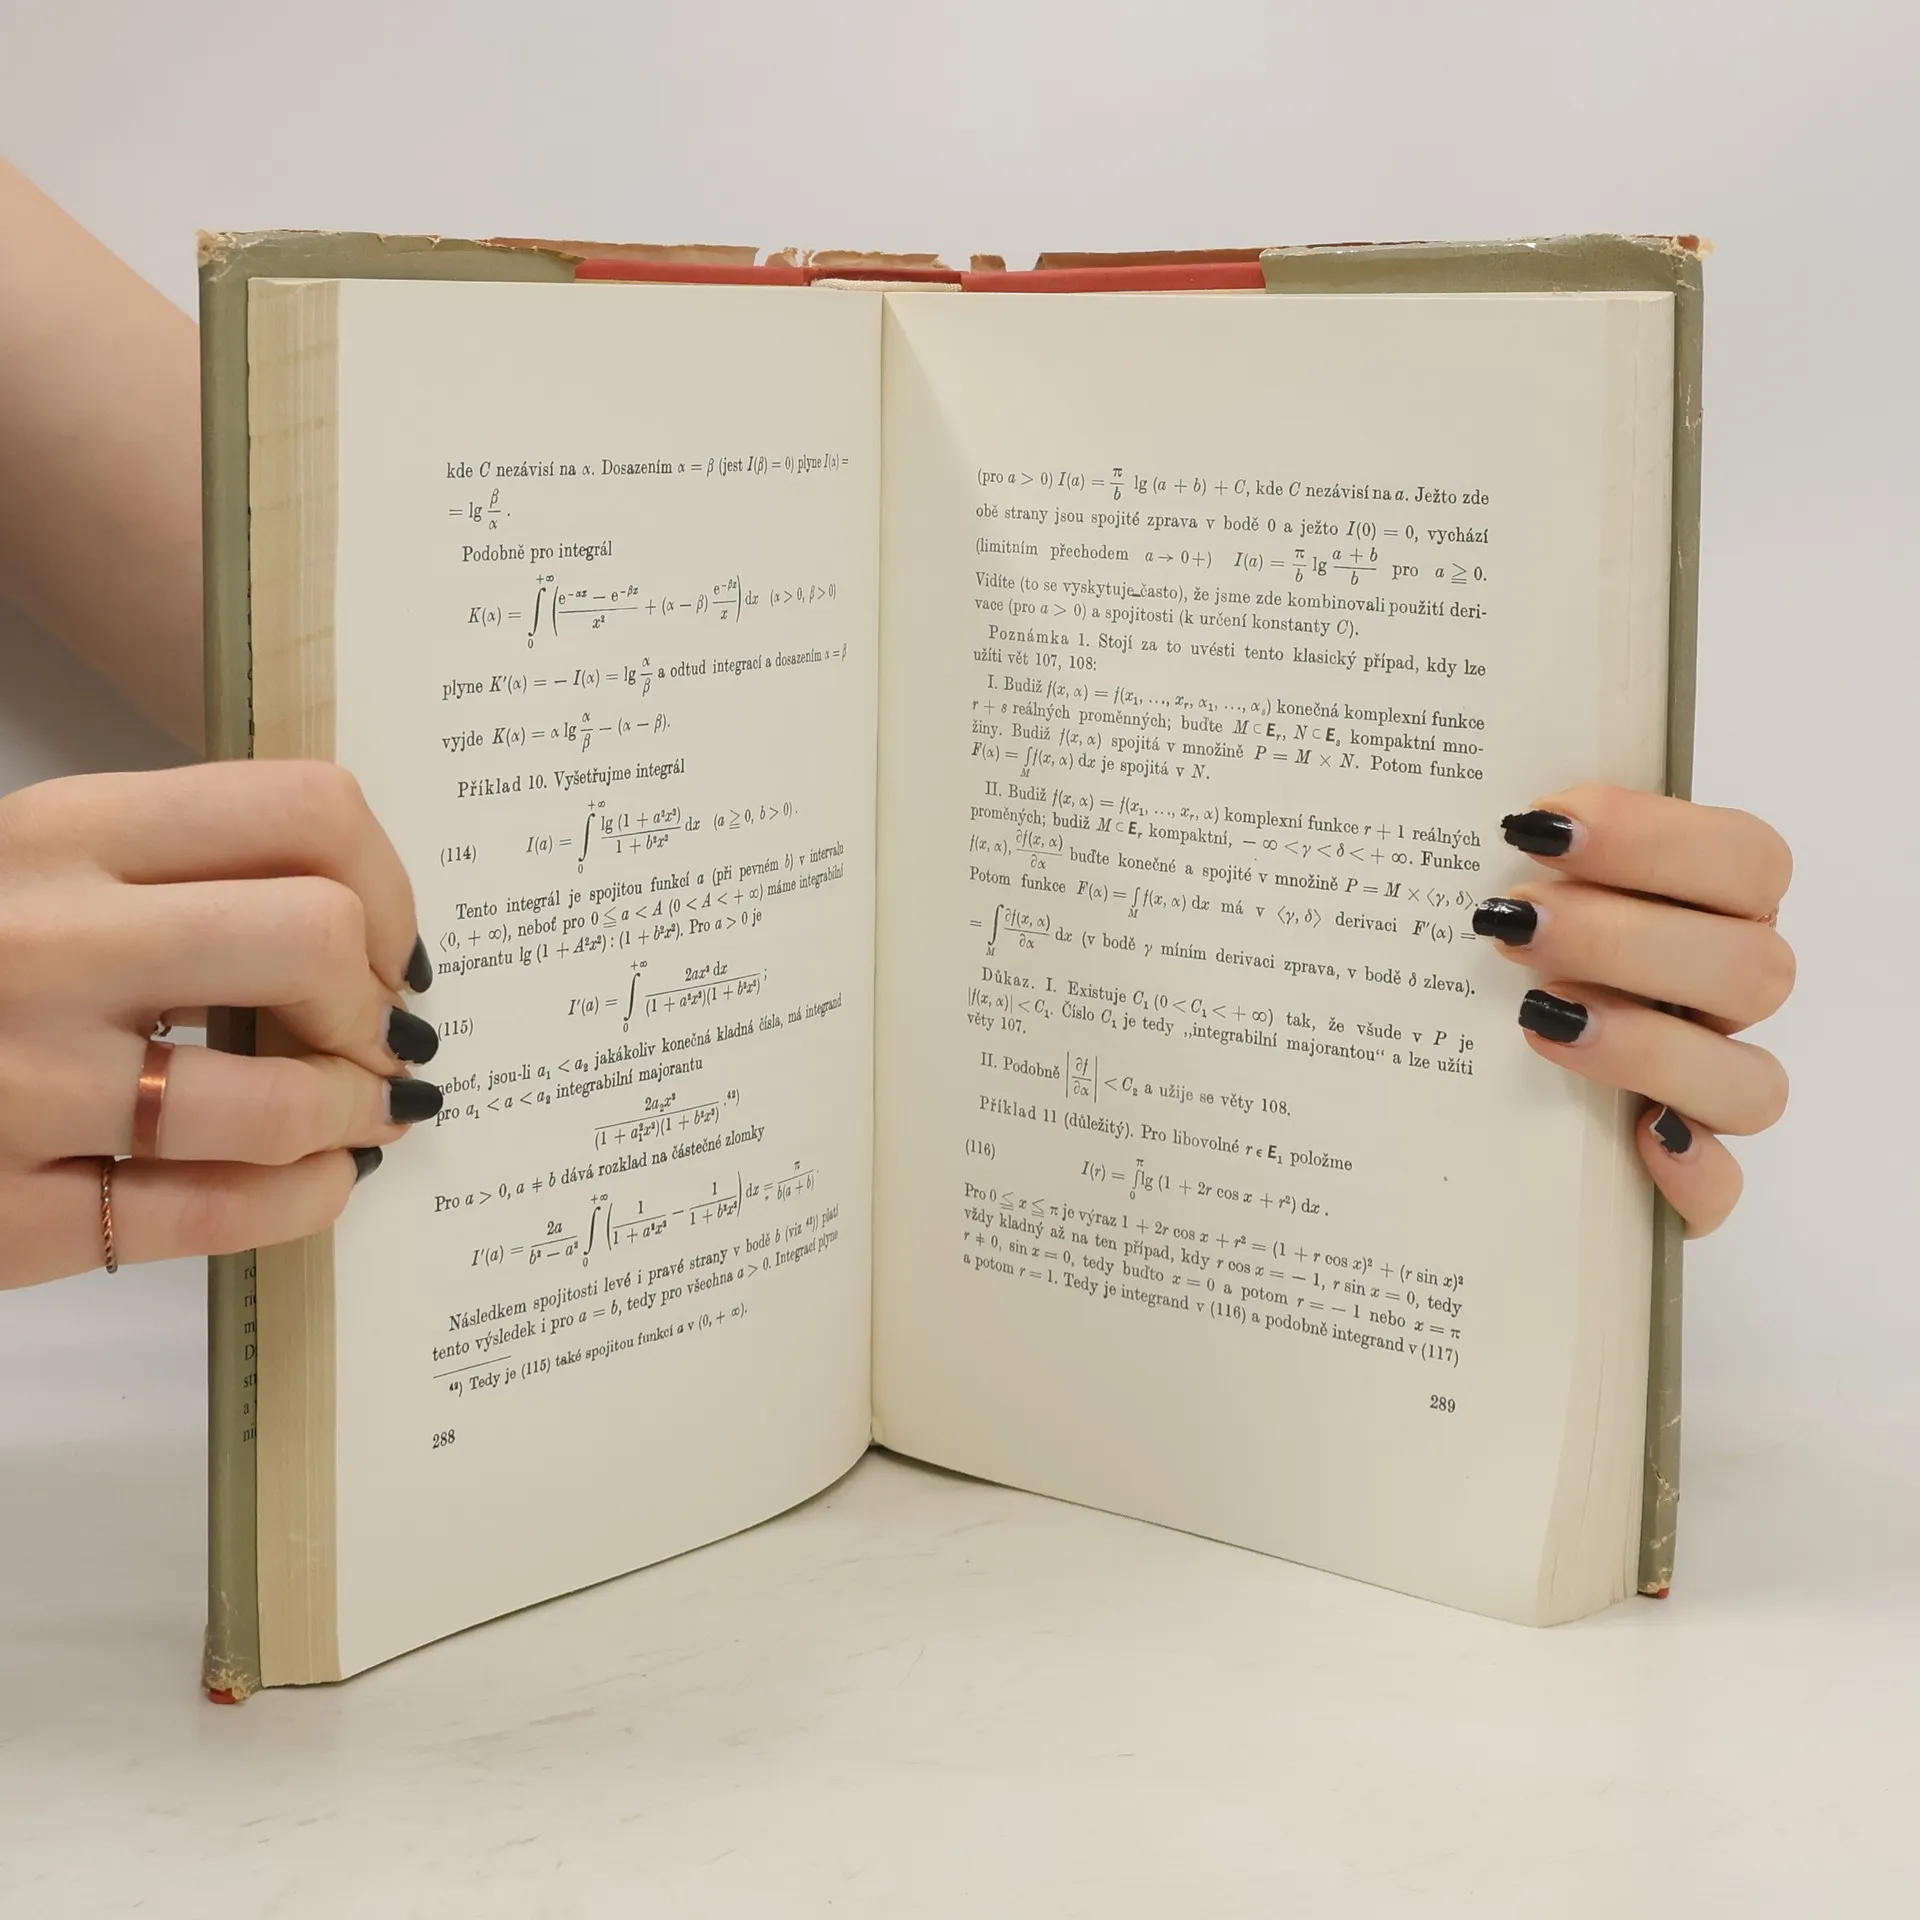 kde C nezávisí na α. Dosazením α = β (jest I(β) = 0) plyne I(α) =
= lg β/α .
Podobně pro integrál
K(α) = ∫₀^{+∞} ( (e^{−αx} − e^{−βx})/x² + (α − β) e^{−βx}/x ) dx (α > 0, β > 0)
plyne K′(α) = − I(α) = lg α/β a odtud integrací a dosazením α = β
vyjde K(α) = α lg α/β − (α − β).
Příklad 10. Vyšetřujme integrál
(114) I(a) = ∫₀^{+∞} lg (1 + a²x²)/(1 + b²x²) dx (a ≧ 0, b > 0).
Tento integrál je spojitou funkcí a (při pevném b) v intervalu
⟨0, + ∞), neboť pro 0 ≦ a < A (0 < A < + ∞) máme integrabilní
majorantu lg (1 + A²x²) : (1 + b²x²). Pro a > 0 je
(115) I′(a) = ∫₀^{+∞} 2ax² dx/((1 + a²x²)(1 + b²x²)) ;
neboť, jsou-li a₁ < a₂ jakákoliv konečná kladná čísla, má integrand
pro a₁ < a < a₂ integrabilní majorantu
2a₂x²/((1 + a₁²x²)(1 + b²x²)) .⁴²)
Pro a > 0, a ≠ b dává rozklad na částečné zlomky
I′(a) = 2a/(b² − a²) ∫₀^{+∞} ( 1/(1 + a²x²) − 1/(1 + b²x²) ) dx = π/(b(a + b)) .
Následkem spojitosti levé i pravé strany v bodě b (viz ⁴²)) platí
tento výsledek i pro a = b, tedy pro všechna a > 0. Integrací plyne
⁴²) Tedy je (115) také spojitou funkcí a v (0, + ∞).
288
(pro a > 0) I(a) = π/b lg (a + b) + C, kde C nezávisí na a. Ježto zde
obě strany jsou spojité zprava v bodě 0 a ježto I(0) = 0, vychází
(limitním přechodem a → 0+) I(a) = π/b lg (a + b)/b pro a ≧ 0.
Vidíte (to se vyskytuje často), že jsme zde kombinovali použití deri-
vace (pro a > 0) a spojitosti (k určení konstanty C).
Poznámka 1. Stojí za to uvésti tento klasický případ, kdy lze
užíti vět 107, 108:
I. Budiž f(x, α) = f(x₁, …, xᵣ, α₁, …, αₛ) konečná komplexní funkce
r + s reálných proměnných; buďte M ⊂ Eᵣ, N ⊂ Eₛ kompaktní mno-
žiny. Budiž f(x, α) spojitá v množině P = M × N. Potom funkce
F(α) = ∫_M f(x, α) dx je spojitá v N.
II. Budiž f(x, α) = f(x₁, …, xᵣ, α) komplexní funkce r + 1 reálných
proměných; budiž M ⊂ Eᵣ kompaktní, − ∞ < γ < δ < + ∞. Funkce
f(x, α), ∂f(x, α)/∂α buďte konečné a spojité v množině P = M × ⟨γ, δ⟩.
Potom funkce F(α) = ∫_M f(x, α) dx má v ⟨γ, δ⟩ derivaci F′(α) =
= ∫_M ∂f(x, α)/∂α dx (v bodě γ míním derivaci zprava, v bodě δ zleva).
Důkaz. I. Existuje C₁ (0 < C₁ < + ∞) tak, že všude v P je
|f(x, α)| < C₁. Číslo C₁ je tedy „integrabilní majorantou“ a lze užíti
věty 107.
II. Podobně |∂f/∂α| < C₂ a užije se věty 108.
Příklad 11 (důležitý). Pro libovolné r ϵ E₁ položme
(116) I(r) = ∫₀^π lg (1 + 2r cos x + r²) dx .
Pro 0 ≦ x ≦ π je výraz 1 + 2r cos x + r² = (1 + r cos x)² + (r sin x)²
vždy kladný až na ten případ, kdy r cos x = − 1, r sin x = 0, tedy
r ≠ 0, sin x = 0, tedy buďto x = 0 a potom r = − 1 nebo x = π
a potom r = 1. Tedy je integrand v (116) a podobně integrand v (117)
289